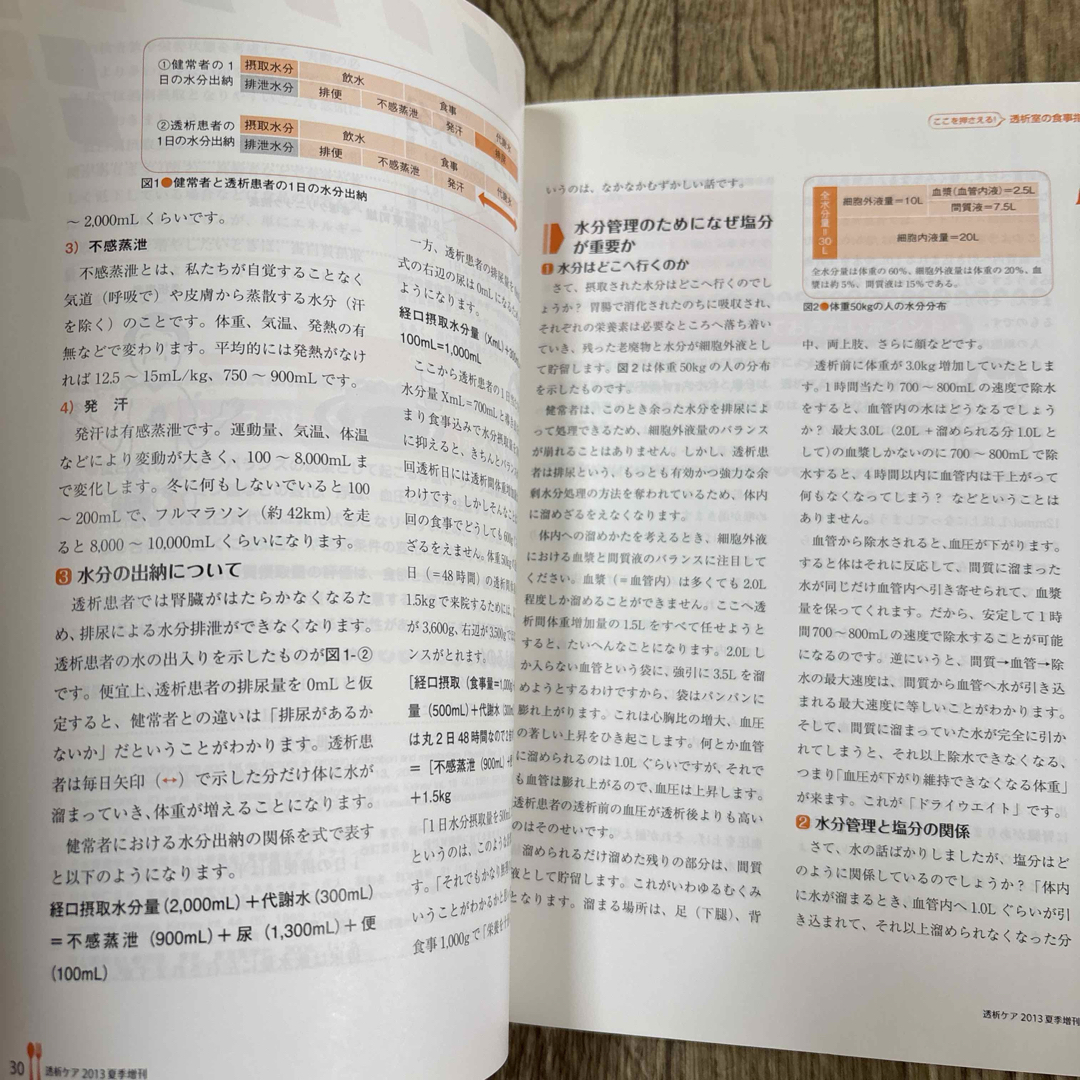 ①健常者の1
日の水分出納
摂取水分 飲水 食事 代謝水
排泄水分 排便 不感蒸泄 発汗
②透析患者の
1日の水分出納
摂取水分 飲水 食事 代謝水
排泄水分 排便 不感蒸泄 発汗
図1●健常者と透析患者の1日の水分出納
～2,000mLくらいです。
3）不感蒸泄
不感蒸泄とは、私たちが自覚することなく
気道（呼吸で）や皮膚から蒸散する水分（汗
を除く）のことです。体重、気温、発熱の有
無などで変わります。平均的には発熱がなけ
れば12.5～15mL/kg、750～900mLです。
4）発 汗
発汗は有感蒸泄です。運動量、気温、体温
などにより変動が大きく、100～8,000mLま
で変化します。冬に何もしないでいると100
～200mLで、フルマラソン（約42km）を走
ると8,000～10,000mLくらいになります。
3 水分の出納について
透析患者では腎臓がはたらかなくなるた
め、排尿による水分排泄ができなくなります。
透析患者の水の出入りを示したものが図1-②
です。便宜上、透析患者の排尿量を0mLと仮
定すると、健常者との違いは「排尿があるか
ないか」だということがわかります。透析患
者は毎日矢印（↔）で示した分だけ体に水が
溜まっていき、体重が増えることになります。
健常者における水分出納の関係を式で表す
と以下のようになります。
経口摂取水分量（2,000mL）＋代謝水（300mL）
＝不感蒸泄（900mL）＋尿（1,300mL）＋便
（100mL）
一方、透析患者の排尿量を
式の右辺の尿は0mLになるため
ようになります。
経口摂取水分量（XmL）＋
100mL=1,000mL
ここから透析患者の1日の
水分量XmL=700mLと
まり食事込みで水分摂取量を
に抑えると、きちんとバラン
回透析日には透析間体重増加
わけです。しかしそんなこと
回の食事でどうしても600
ざるをえません。体重50kgの
日（＝48時間）の透析間
1.5kgで来院するためには、
が3,600g、右辺が3,500g
ンスがとれます。
［経口摂取（食事量=1,000g
量（500mL）＋代謝水（300m
は丸2日48時間なので2
＝［不感蒸泄（900mL＋
＋1.5kg
「1日水分摂取量を500m
というのは、このような
す。「それでもかなり無理
いうことがわかるかと
食事1,000gで「栄養を
30 透析ケア 2013 夏季増刊
ここを押さえる！ 透析室の食事指
いうのは、なかなかむずかしい話です。
水分管理のためになぜ塩分
が重要か
1 水分はどこへ行くのか
さて、摂取された水分はどこへ行くのでし
ょうか？ 胃腸で消化されたのちに吸収され、
それぞれの栄養素は必要なところへ落ち着い
ていき、残った老廃物と水分が細胞外液とし
て貯留します。図2は体重50kgの人の分布
を示したものです。
健常者は、このとき余った水分を排尿によ
って処理できるため、細胞外液量のバランス
が崩れることはありません。しかし、透析患
者は排尿という、もっとも有効かつ強力な余
剰水分処理の方法を奪われているため、体内
に溜めざるをえなくなります。
体内への溜めかたを考えるとき、細胞外液
における血漿と間質液のバランスに注目して
ください。血漿（＝血管内）は多くても2.0L
程度しか溜めることができません。ここへ透
析間体重増加量の1.5Lをすべて任せようと
すると、たいへんなことになります。2.0Lし
か入らない血管という袋に、強引に3.5Lを溜
めようとするわけですから、袋はパンパンに
膨れ上がります。これは心胸比の増大、血圧
の著しい上昇をひき起こします。何とか血管
に溜められるのは1.0Lぐらいですが、それで
も血管は膨れ上がるので、血圧は上昇します。
透析患者の透析前の血圧が透析後よりも高い
のはそのせいです。
溜められるだけ溜めた残りの部分は、間質
液として貯留します。これがいわゆるむくみ
となります。溜まる場所は、足（下腿）、背
全水分量＝30L
細胞外液量＝10L
血漿（血管内液）＝2.5L
間質液＝7.5L
細胞内液量＝20L
全水分量は体重の60％、細胞外液量は体重の20％、血
漿は約5％、間質液は15％である。
図2●体重50kgの人の水分分布
中、両上肢、さらに顔などです。
透析前に体重が3.0kg増加していたとしま
す。1時間当たり700～800mLの速度で除水
をすると、血管内の水はどうなるでしょう
か？ 最大3.0L（2.0L＋溜められる分1.0Lと
して）の血漿しかないのに700～800mLで除
水すると、4時間以内に血管内は干上がって
何もなくなってしまう？ などということは
ありません。
血管から除水されると、血圧が下がります。
すると体はそれに反応して、間質に溜まった
水が同じだけ血管内へ引き寄せられて、血漿
量を保ってくれます。だから、安定して1時
間700～800mLの速度で除水することが可能
になるのです。逆にいうと、間質→血管→除
水の最大速度は、間質から血管へ水が引き込
まれる最大速度に等しいことがわかります。
そして、間質に溜まっていた水が完全に引か
れてしまうと、それ以上除水できなくなる、
つまり「血圧が下がり維持できなくなる体重」
が来ます。これが「ドライウエイト」です。
2 水分管理と塩分の関係
さて、水の話ばかりしましたが、塩分はど
のように関係しているのでしょうか？「体内
に水が溜まるとき、血管内へ1.0Lぐらいが引
き込まれて、それ以上溜められなくなった分
透析ケア 2013 夏季増刊